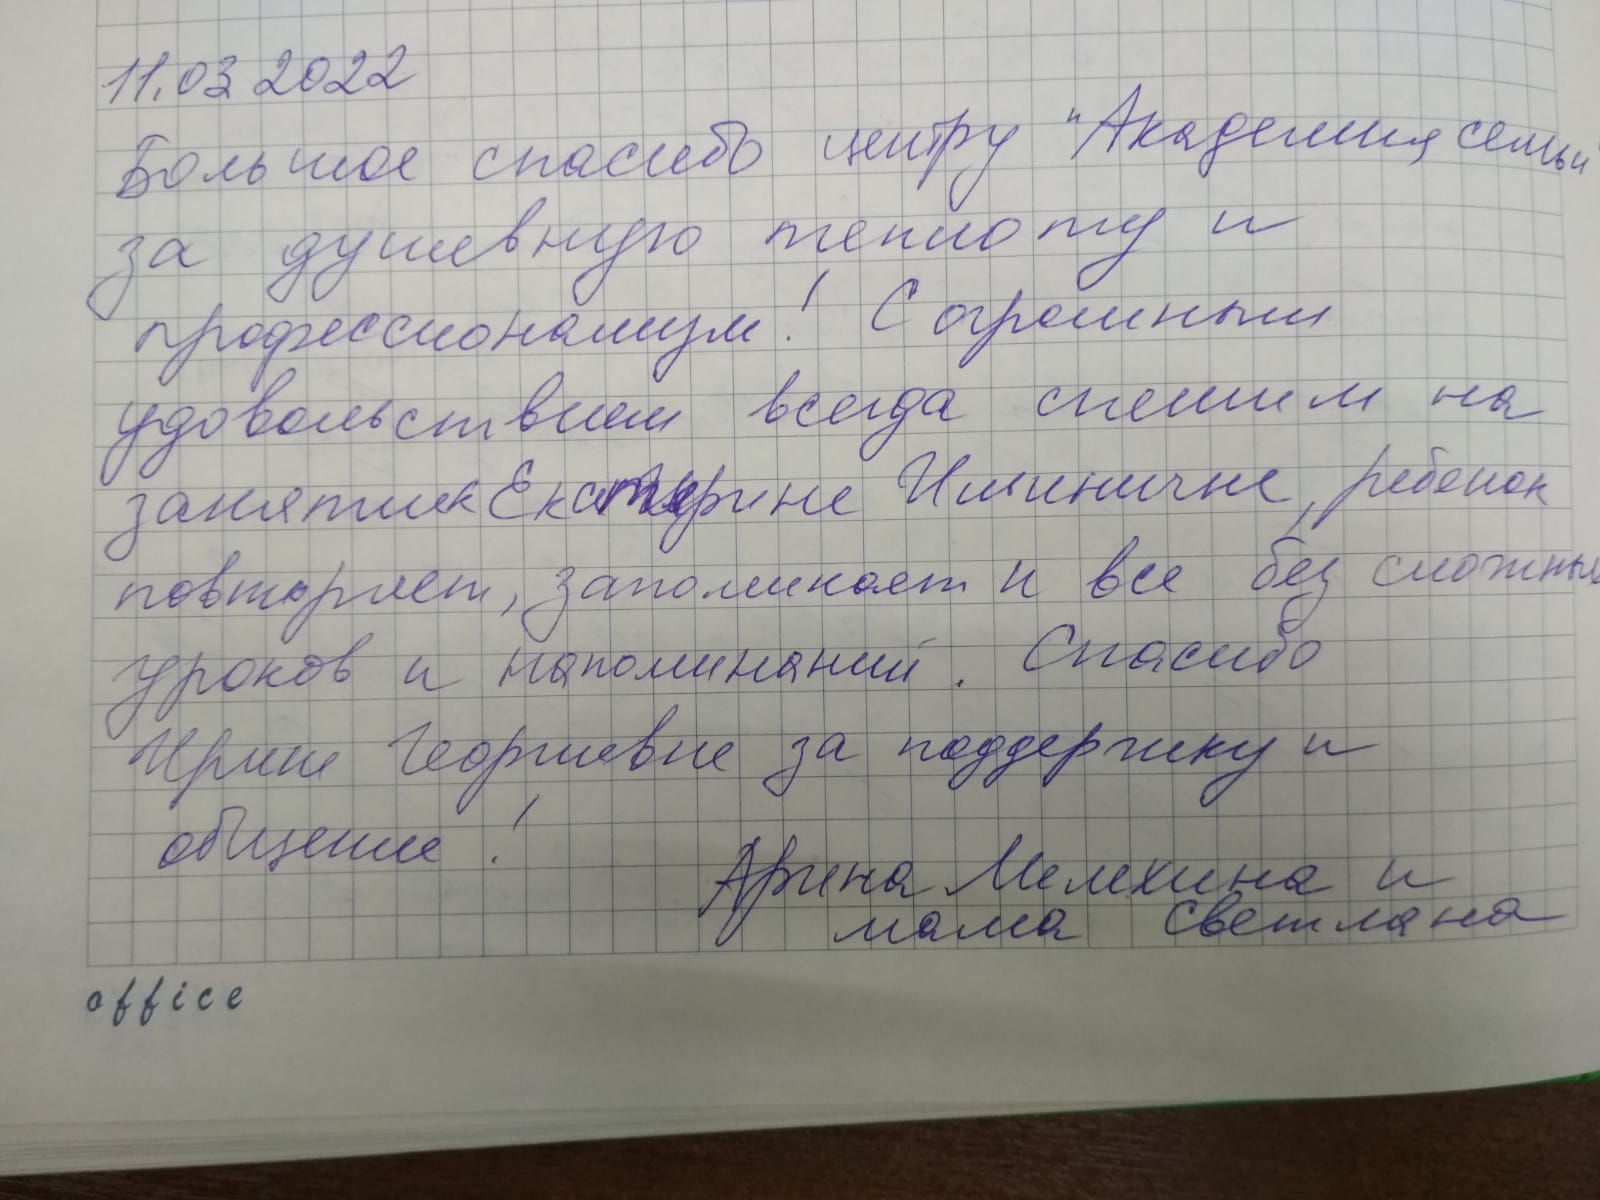 11.03 2022
Большое спасибо центру "Академия семьи"
за душевную теплоту и
профессионализм! С огромным
удовольствием всегда спешим на
занятия к Екатерине Ильиничне, ребенок
повторяет, запоминает и все без сложных
уроков и напоминаний. Спасибо
Ирине Георгиевне за поддержку и
общение!
Арина Мелехина и
мама Светлана
office